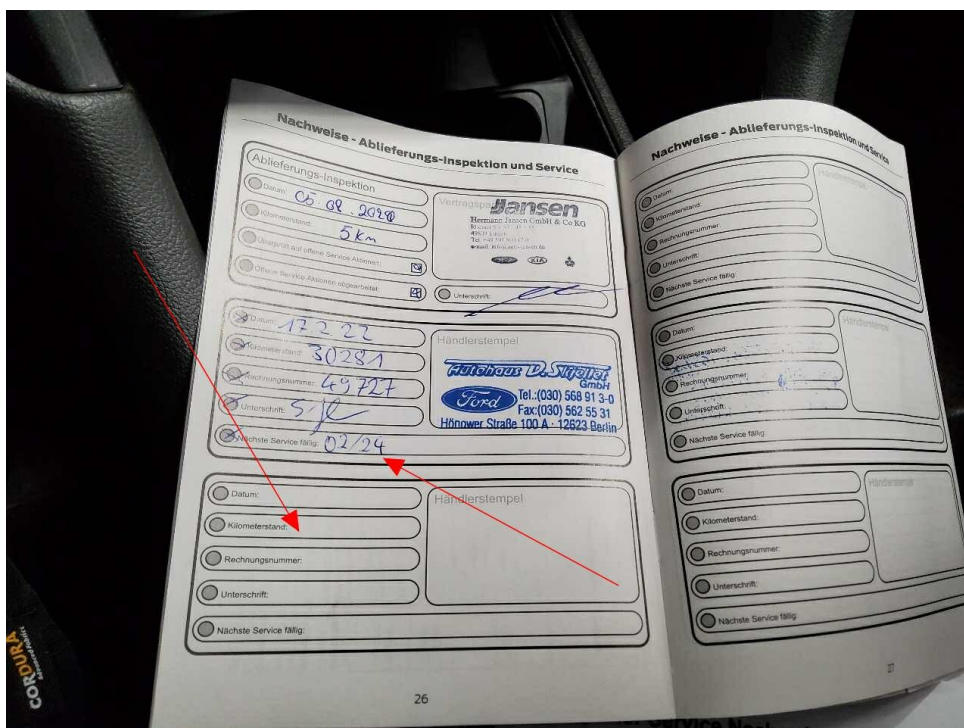 Nachweise - Ablieferungs-Inspektion und Service
Ablieferungs-Inspektion
Datum: 05.08.2020
Kilometerstand: 5 km
Überprüft auf offene Service Aktionen:
Offene Service Aktionen abgearbeitet:
Jansen
Hermann Jansen GmbH & Co KG
KIA
Unterschrift:
Datum: 17 2 22
Kilometerstand: 30281
Rechnungsnummer: 49727
Unterschrift:
Nächste Service fällig: 02/24
Händlerstempel
Autohaus
GmbH
Ford
Tel.:(030) 568 91 3-0
Fax:(030) 562 55 31
Hönower Straße 100 A · 12623 Berlin
Datum:
Kilometerstand:
Rechnungsnummer:
Unterschrift:
Nächste Service fällig:
Händlerstempel
26
Nachweise - Ablieferungs-Inspektion und Service
Datum:
Kilometerstand:
Rechnungsnummer:
Unterschrift:
Nächste Service fällig:
Händlerstempel
Datum:
Kilometerstand:
Rechnungsnummer:
Unterschrift:
Nächste Service fällig:
Händlerstempel
Datum:
Kilometerstand:
Rechnungsnummer:
Unterschrift:
Nächste Service fällig:
Händlerstempel
CORDURA